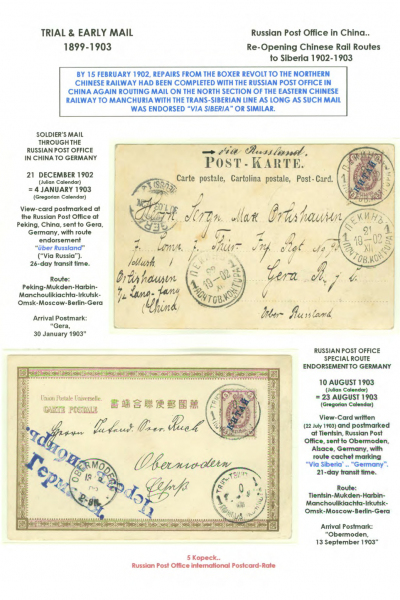 TRIAL & EARLY MAIL
1899-1903
Russian Post Office in China..
Re-Opening Chinese Rail Routes
to Siberia 1902-1903
BY 15 FEBRUARY 1902, REPAIRS FROM THE BOXER REVOLT TO THE NORTHERN
CHINESE RAILWAY HAD BEEN COMPLETED WITH THE RUSSIAN POST OFFICE IN
CHINA AGAIN ROUTING MAIL ON THE NORTH SECTION OF THE EASTERN CHINESE
RAILWAY TO MANCHURIA WITH THE TRANS-SIBERIAN LINE AS LONG AS SUCH MAIL
WAS ENDORSED "VIA SIBERIA" OR SIMILAR.
SOLDIER'S MAIL
THROUGH THE
RUSSIAN POST OFFICE
IN CHINA TO GERMANY
21 DECEMBER 1902
(Julian Calendar)
= 4 JANUARY 1903
(Gregorian Calendar)
View-card postmarked at
the Russian Post Office at
Peking, China, sent to Gera,
Germany, with route
endorsement
"über Russland"
("Via Russia").
26-day transit time.
Route:
Peking-Mukden-Harbin-
Manchoulikiachta-Irkutsk-
Omsk-Moscow-Berlin-Gera
Arrival Postmark:
"Gera,
30 January 1903"
via Russland
POST-KARTE.
Carte postale, Cartolina postale, Post-Card.
Gera R. j. L.
China
Ober Russland
ПЕКИНЪ
ПОЧТОВ.КОНТОРА
КИТАЙ
RUSSIAN POST OFFICE
SPECIAL ROUTE
ENDORSEMENT TO GERMANY
10 AUGUST 1903
(Julian Calendar)
= 23 AUGUST 1903
(Gregorian Calendar)
View-Card written
(22 July 1903) and postmarked
at Tientsin, Russian Post
Office, sent to Obermoden,
Alsace, Germany, with
route cachet marking
"Via Siberia' .. "Germany".
21-day transit time.
Route:
Tientsin-Mukden-Harbin-
Manchouliakiachta-Irkutsk-
Omsk-Moscow-Berlin-Gera
Arrival Postmark:
"Obermoden,
13 September 1903"
Union Postale Universelle.
CARTE POSTALE
Obermodern
OBERMODERN
КИТАЙ
5 Kopeck..
Russian Post Office international Postcard-Rate